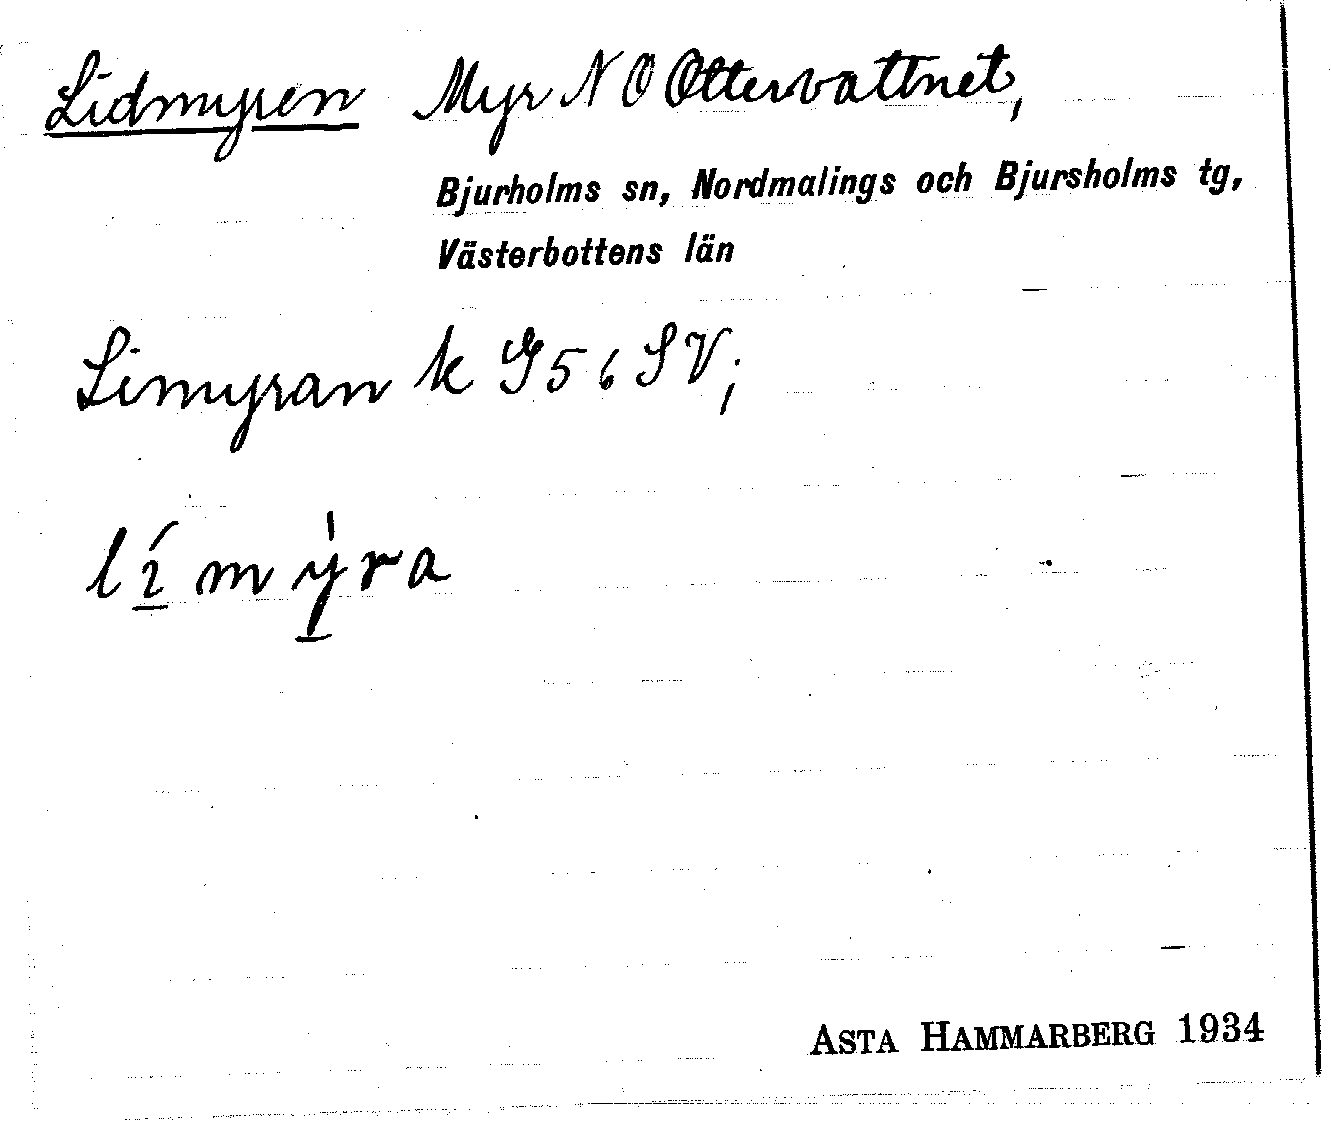 Lidmyren Myr N O Ottervattnet,
Bjurholms sn, Nordmalings och Bjursholms tg,
Västerbottens län
Limyran k G56 SV;
lí̱mẏ̱ra
ASTA HAMMARBERG 1934